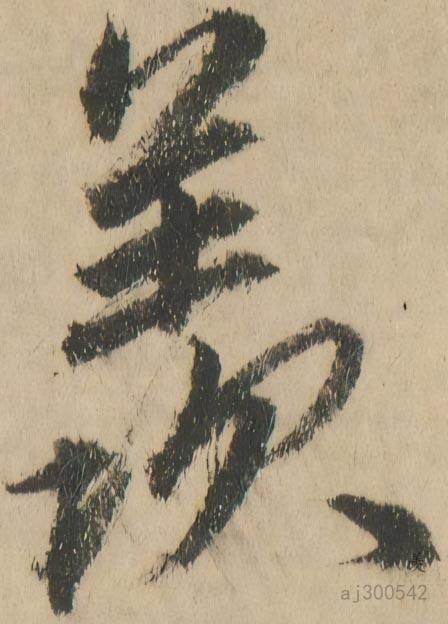 羨
aj300542